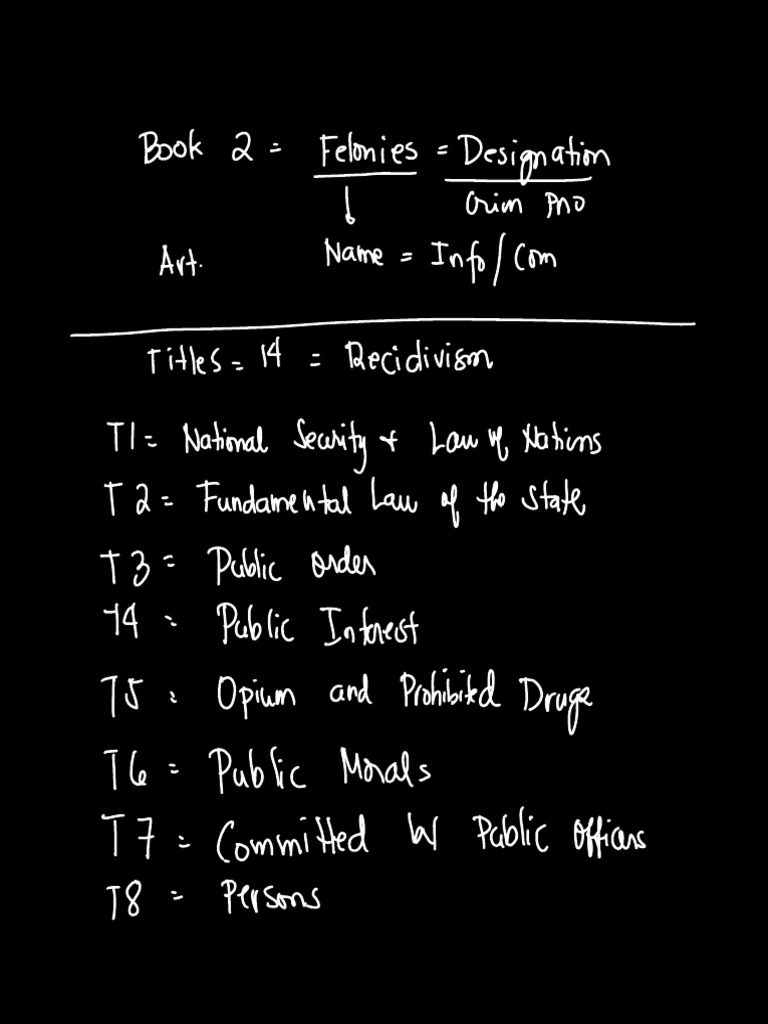 Book 2 = Felonies = Designation
Crim Pro
Art. Name = Info/Com
Titles = 14 = Recidivism
T1 = National Security & Law of Nations
T2 = Fundamental Law of the State
T3 = Public order
T4 = Public Interest
T5 = Opium and Prohibited Drugs
T6 = Public Morals
T7 = Committed by Public Officers
T8 = Persons